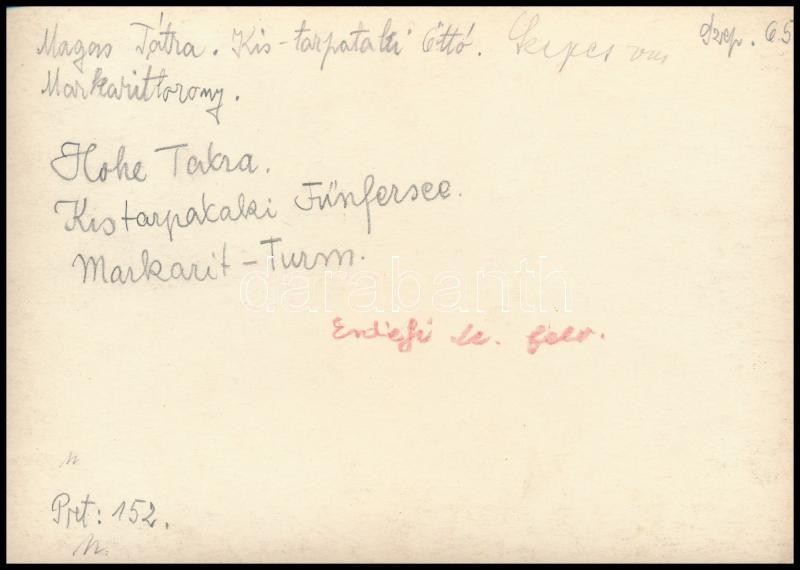 Magas Tátra. Kis-tarpataki Öttó. Szepes vm
Szep. 65
Markarittorony.
Hohe Tatra.
Kistarpataki Fünfersee.
Markarit-Turm.
darabanth
Erdélyi le. felv.
n
Pret: 152.
n.